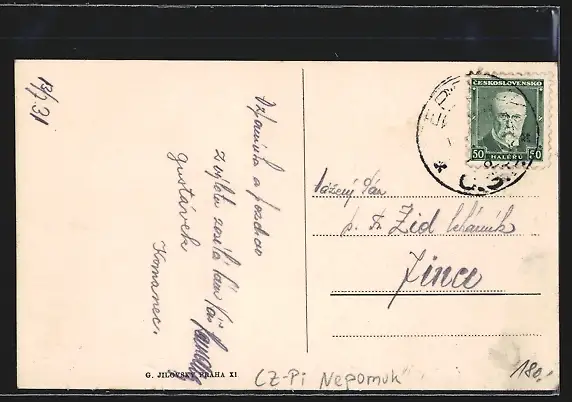 13/7 31
Vzpomínku a pozdrav
z výletu zasílá Vám
Gustávek
Komanec.
ČESKOSLOVENSKO
50 HALÉŘŮ 50
Vážený Pán
p. Fr. Žid
Jince
G. JILOVSKÝ PRAHA XI
CZ-Pi Nepomuk
180,-